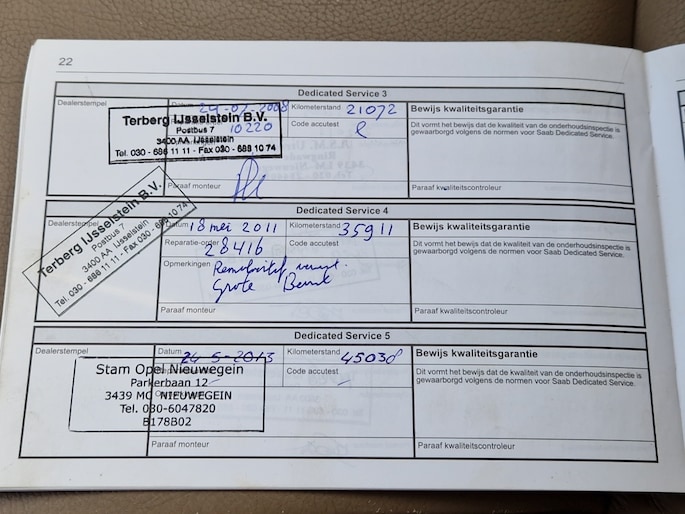 22
Dedicated Service 3
Dealerstempel
Terberg IJsselstein B.V.
Postbus 7
3400 AA IJsselstein
Tel. 030 - 686 11 11 - Fax 030 - 688 10 74
Datum
2008
10220
Paraaf monteur
Kilometerstand 21072
Code accutest
Bewijs kwaliteitsgarantie
Dit vormt het bewijs dat de kwaliteit van de onderhoudsinspectie is
gewaarborgd volgens de normen voor Saab Dedicated Service.
Paraaf kwaliteitscontroleur
Dedicated Service 4
Dealerstempel
Terberg IJsselstein B.V.
Postbus 7
3400 AA IJsselstein
Tel. 030 - 686 11 11 - Fax 030 - 688 10 74
Datum 18 mei 2011
Reparatie-order 28416
Opmerkingen Remvloeistof
Grote Beurt
Paraaf monteur
Kilometerstand 35911
Code accutest
Bewijs kwaliteitsgarantie
Dit vormt het bewijs dat de kwaliteit van de onderhoudsinspectie is
gewaarborgd volgens de normen voor Saab Dedicated Service.
Paraaf kwaliteitscontroleur
Dedicated Service 5
Dealerstempel
Stam Opel Nieuwegein
Parkerbaan 12
3439 MC NIEUWEGEIN
Tel. 030-6047820
B178B02
Datum 24-5-2013
Paraaf monteur
Kilometerstand 45038
Code accutest
Bewijs kwaliteitsgarantie
Dit vormt het bewijs dat de kwaliteit van de onderhoudsinspectie is
gewaarborgd volgens de normen voor Saab Dedicated Service.
Paraaf kwaliteitscontroleur